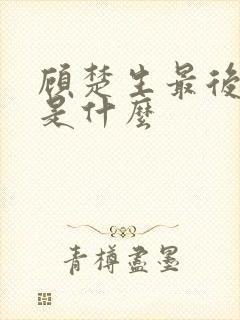 顾楚生最後
是什麼
青樽盡墨